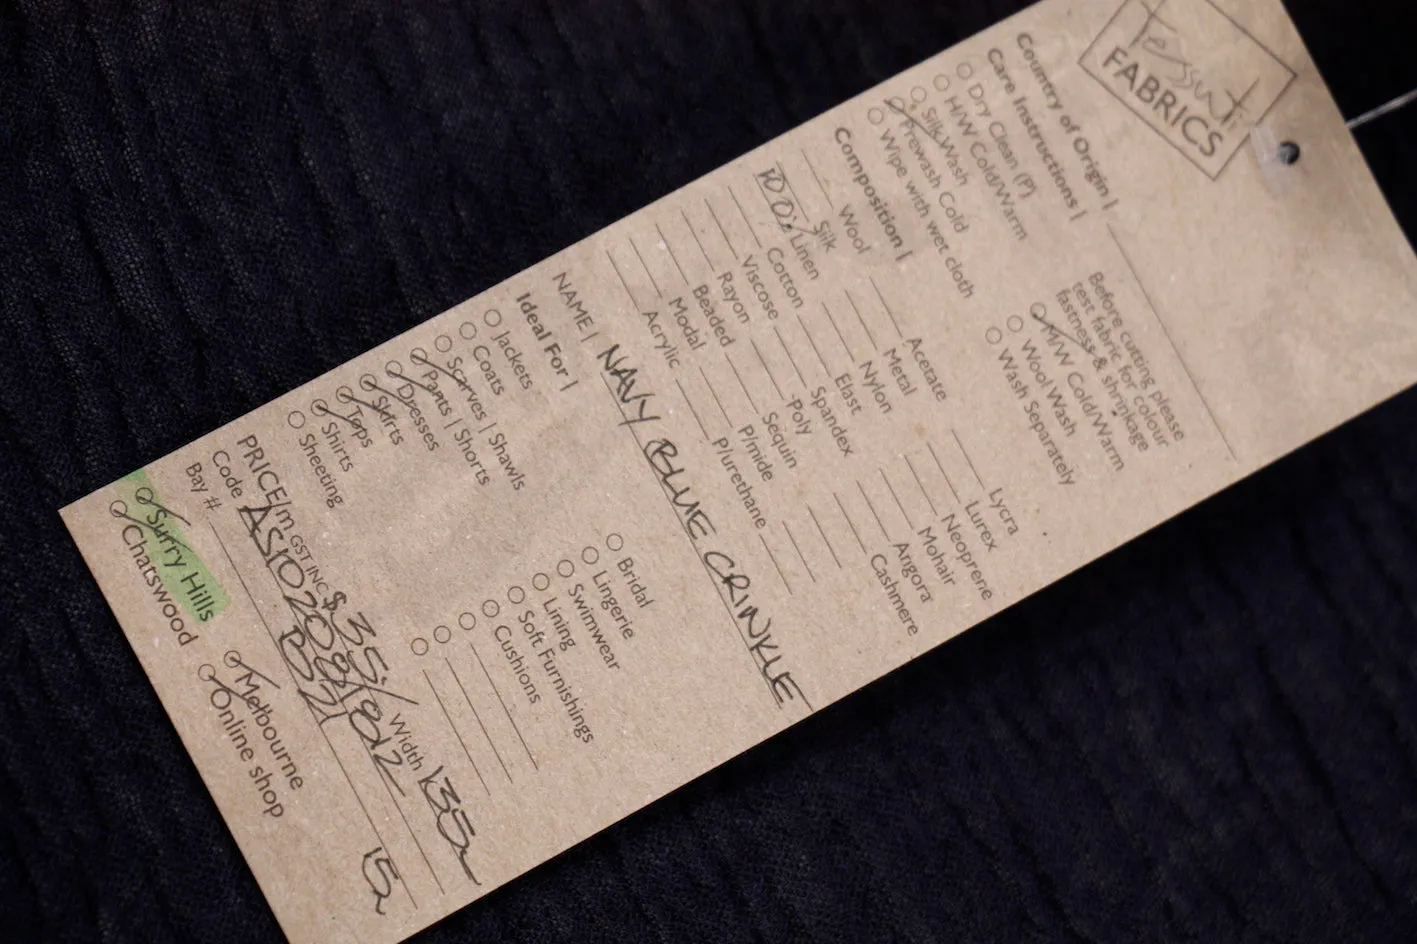 Tessuti
FABRICS
Country of Origin |
Care Instructions |
Dry Clean (P)
H/W Cold/Warm
Silk Wash
Prewash Cold
Wipe with wet cloth
Before cutting please
test fabric for colour
fastness & shrinkage
H/W Cold/Warm
Wool Wash
Wash Separately
Composition |
Wool
Silk
100% Linen
Cotton
Viscose
Rayon
Beaded
Modal
Acrylic
Acetate
Metal
Nylon
Elast
Spandex
Poly
Sequin
P/mide
P/urethane
Lycra
Lurex
Neoprene
Mohair
Angora
Cashmere
NAME | NAVY BLUE CRINKLE
Ideal For |
Jackets
Coats
Scarves | Shawls
Pants | Shorts
Dresses
Skirts
Tops
Shirts
Sheeting
Bridal
Lingerie
Swimwear
Lining
Soft Furnishings
Cushions
PRICE/m GST INC $35./ Width 135
Code
Bay # B21 15
Surry Hills
Chatswood
Melbourne
Online shop